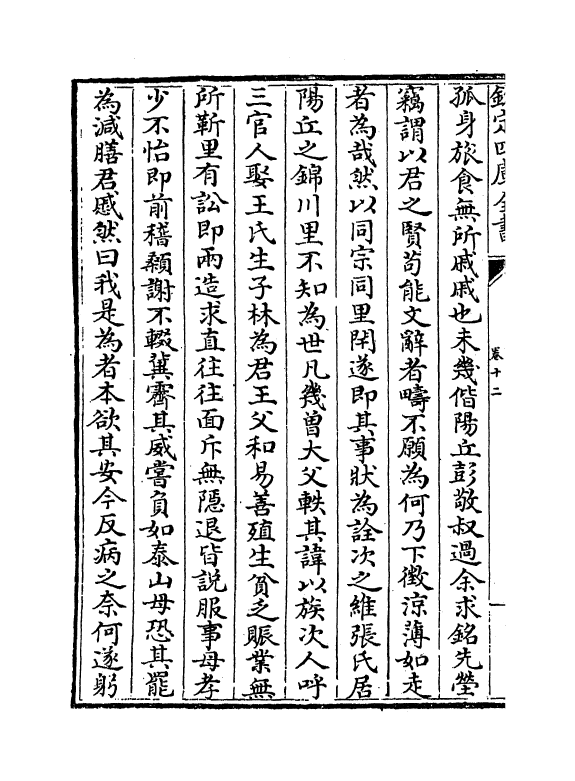 欽定四庫全書
卷十二
孤身旅食無所戚戚也未幾偕陽丘彭敬叔過余求銘先塋
竊謂以君之賢苟能文辭者疇不願為何乃下徵涼薄如走
者為哉然以同宗同里閈遂即其事狀為詮次之維張氏居
陽丘之錦川里不知為世凡幾曽大父軼其諱以族次人呼
三官人娶王氏生子林為君王父和易善殖生貧乏賑業無
所靳里有訟即兩造求直往往面斥無隱退皆説服事母孝
少不怡即前稽顙謝不輟冀霽其威嘗負如泰山母恐其罷
為減膳君慼然曰我是為者本欲其安今反病之奈何遂躬